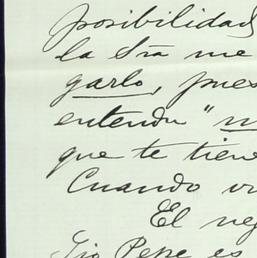 posibilidad
la Sra me
garlo, pues
entendu "
que te tiene
Cuando
El neg
Tio Pepe es